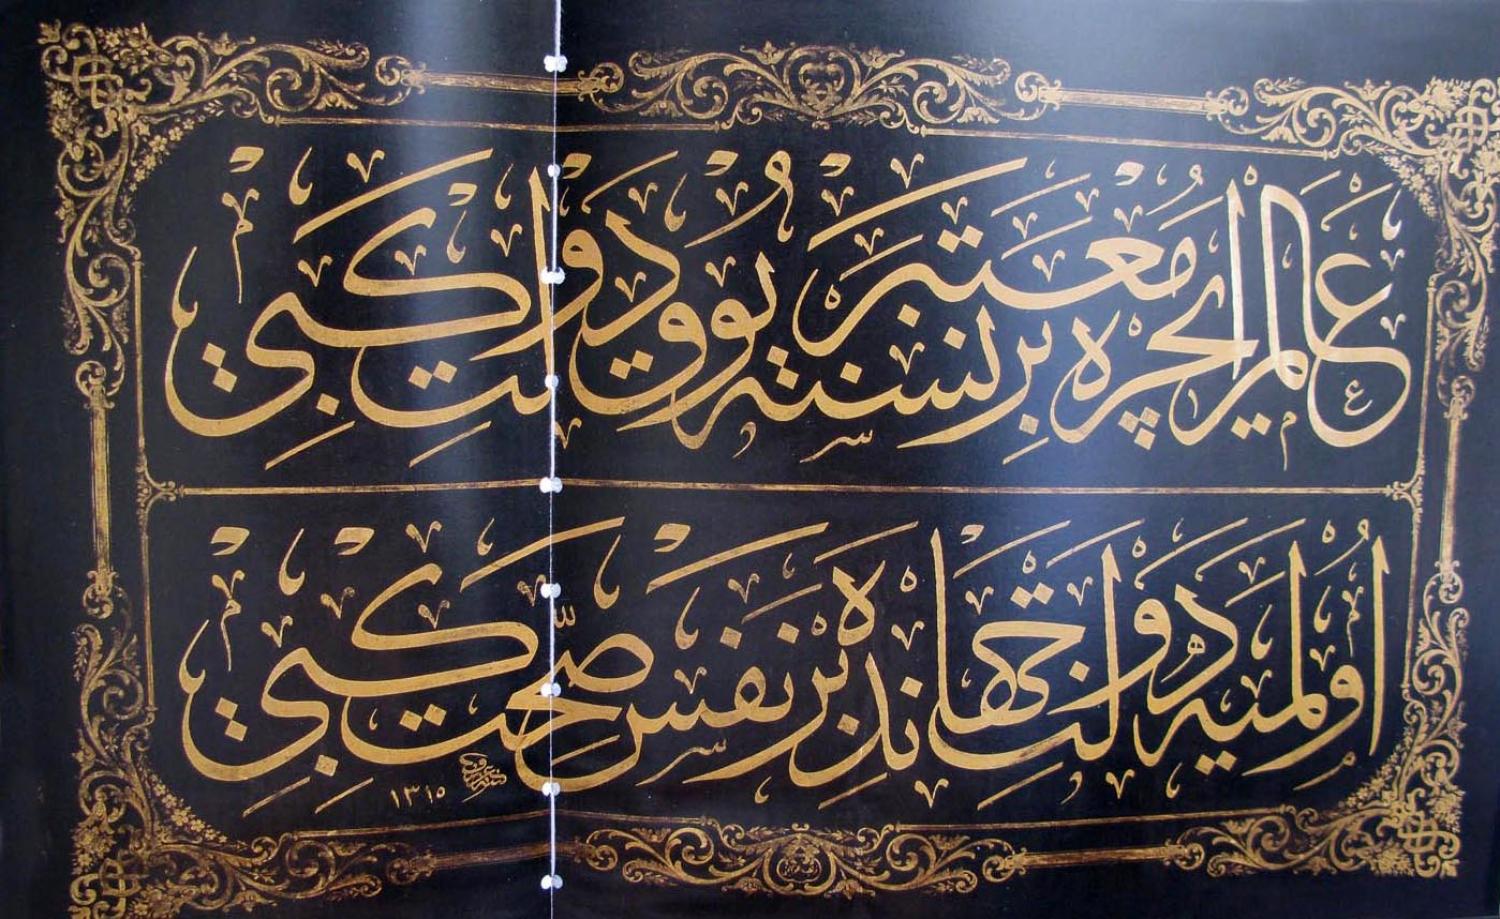 عالم ایچره معتبر بر نسنه یوق دولت كبی
اولمیه دولت جهانده بر نفس صحّت كبی
١٣١٥